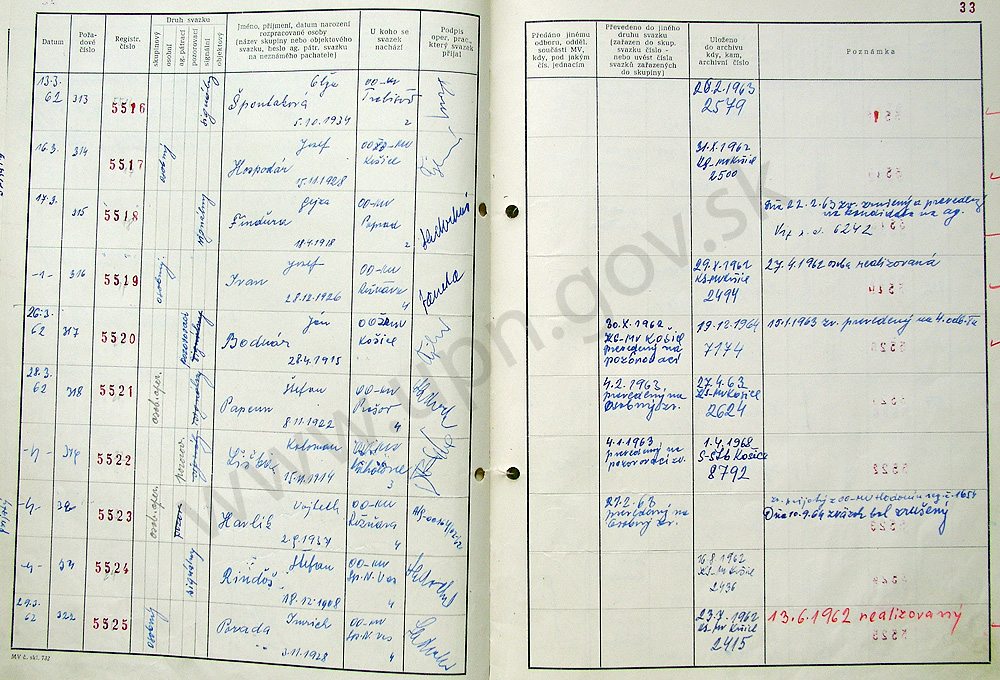 33
Datum
Pořadové číslo
Registr. číslo
Druh svazku
skupinový
osobní
ag.-pátrací
pozorovací
signální
objektový
Jméno, příjmení, datum narození
rozpracované osoby
(název skupiny nebo objektového
svazku, heslo ag. pátr. svazku
na neznámého pachatele)
U koho se
svazek
nachází
Podpis
oper. prac.,
který svazek
přijal
Předáno jinému
odboru, odděl.
součásti MV,
kdy, pod jakým
čís. jednacím
Převedeno do jiného
druhu svazku
(zařazen do skup.
svazku číslo -
nebo uvést čísla
svazků zařazených
do skupiny)
Uloženo
do archivu
kdy, kam,
archivní číslo
Poznámka
13.3.
62 313 5516 signálny
Špontáková
5.10.1934
OO-MV
Trebišov
2
2579
16.3. 314 5517 osobný
Jozef
Hospodár
15.11.1928
Košice
31.8.1962
KS-MV Košice
2500
17.3. 315 5518 signálny
Gejza
Findura
18.4.1918
OO-MV
Poprad
2
Dňa 22.2.63 zv. zrušený a prevedený
na kandidáta na ag.
6242
-"- 316 5519 osobný
Jozef
Ivan
28.12.1926
OO-MV
Rožňava
4
29.X.1962
KS-MV Košice
2494
27.4.1962 osoba realizovaná
26.3.
62 317 5520 pozorovací
Ján
Bodnár
28.4.1915
Košice
30.X.1962
KS-MV Košice
prevedený na
pozorovací
19.12.1964
7174
10.1.1963 zv. prevedený na 4. odb.
28.3.
62 318 5521
Štefan
Papcun
8.11.1922
OO-MV
Prešov
4
4.2.1963
prevedený na
osobný zv.
27.4.63
KS-MV Košice
2624
-"- 319 5522
Koloman
Liška
15.11.1914
4.1.1963
prevedený na
pozorovací zv.
1.4.1968
S-ŠtB Košice
8792
-"- 320 5523
Vojtech
Havlík
2.9.1937
OO-MV
Rožňava
4
27.2.63
prevedený na
osobný zv.
Dňa 10.9.64 zväzok bol zrušený
-"- 321 5524 signálny
Štefan
Rindoš
18.12.1908
OO-MV
Sp.N.Ves
4
16.8.1962
KS-MV Košice
2436
29.3.
62 322 5525 osobný
Imrich
Porada
3.11.1928
OO-MV
Sp.N.Ves
4
23.7.1962
KS-MV Košice
2415
13.6.1962 realizovaný
MV č. skl. 732
www.upn.gov.sk